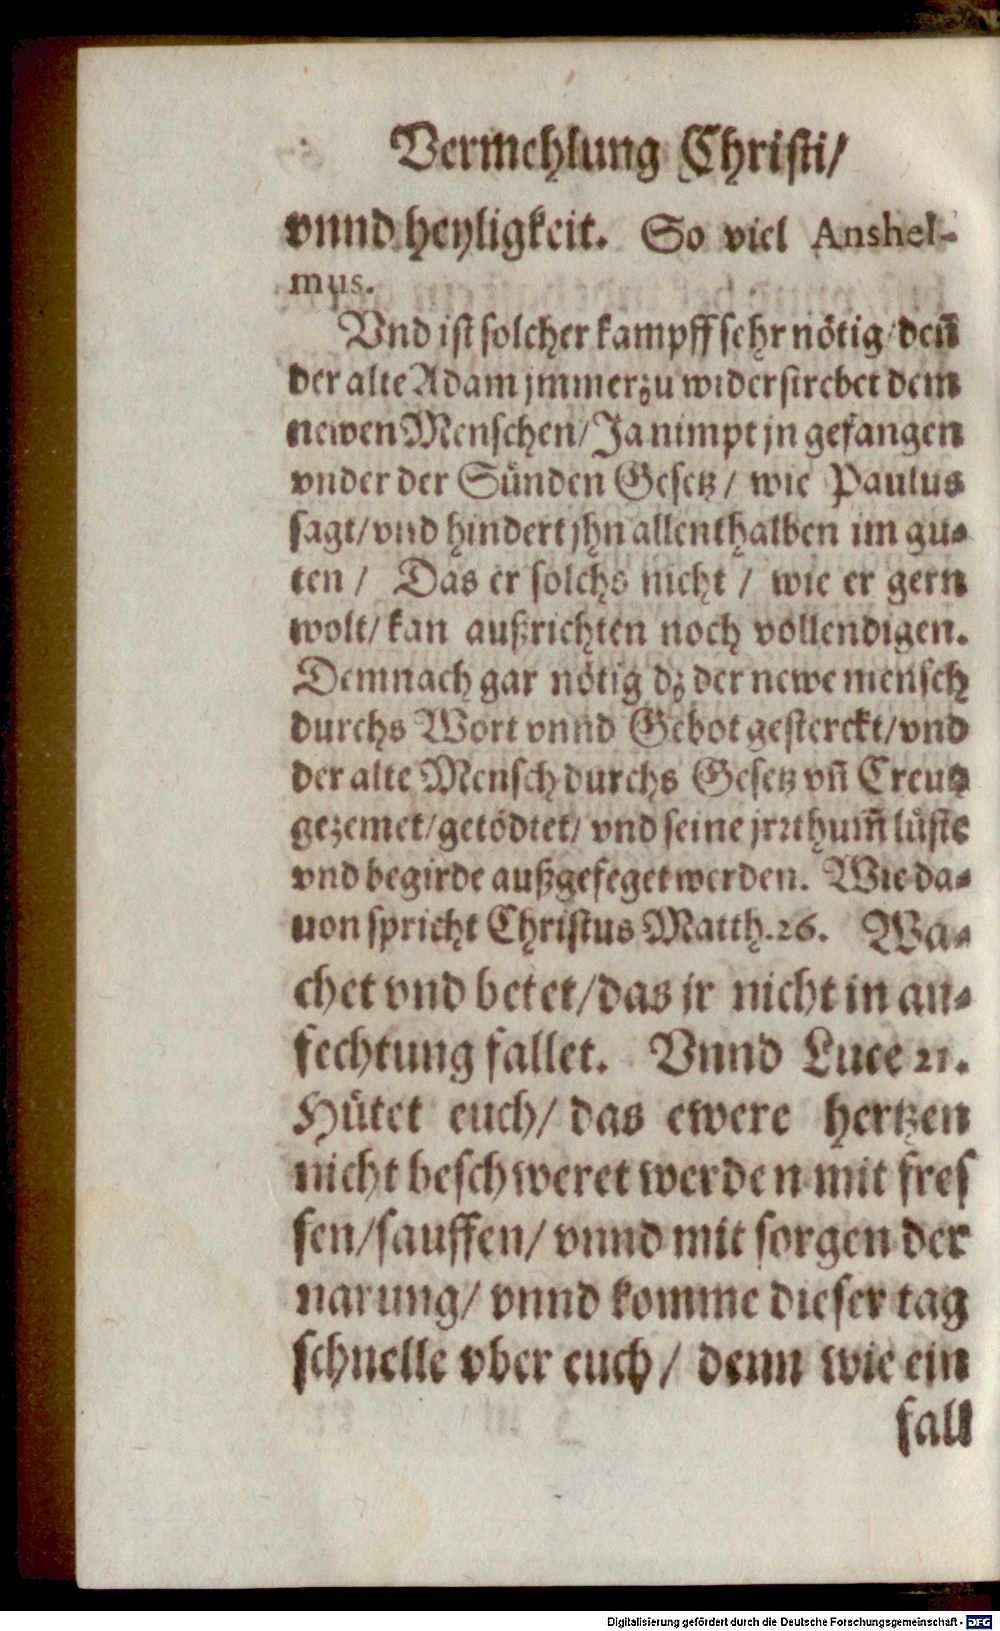 Vermehlung Christi/
vnnd heyligkeit. So viel Anshel-
mus.
Vnd ist solcher kampff sehr nötig/ den̄
der alte Adam jmmerzu widerstrebet dem
newen Menschen/ Ja nimpt jn gefangen
vnder der Sünden Gesetz/ wie Paulus
sagt/ vnd hindert jhn allenthalben im gu-
ten/ Das er solchs nicht/ wie er gern
wolt/ kan außrichten noch vollendigen.
Demnach gar nötig dz der newe mensch
durchs Wort vnnd Gebot gesterckt/ vnd
der alte Mensch durchs Gesetz vn̄ Creutz
gezemet/ getödtet/ vnd seine jrrthum̄ lüste
vnd begirde außgefeget werden. Wie da-
uon spricht Christus Matth. 26. Wa-
chet vnd betet/ das jr nicht in an-
fechtung fallet. Vnnd Luce 21.
Hütet euch/ das ewere hertzen
nicht beschweret werden mit fres
sen/ sauffen/ vnnd mit sorgen der
narung/ vnnd komme dieser tag
schnelle vber euch/ denn wie ein
fall
Digitalisierung gefördert durch die Deutsche Forschungsgemeinschaft - DFG